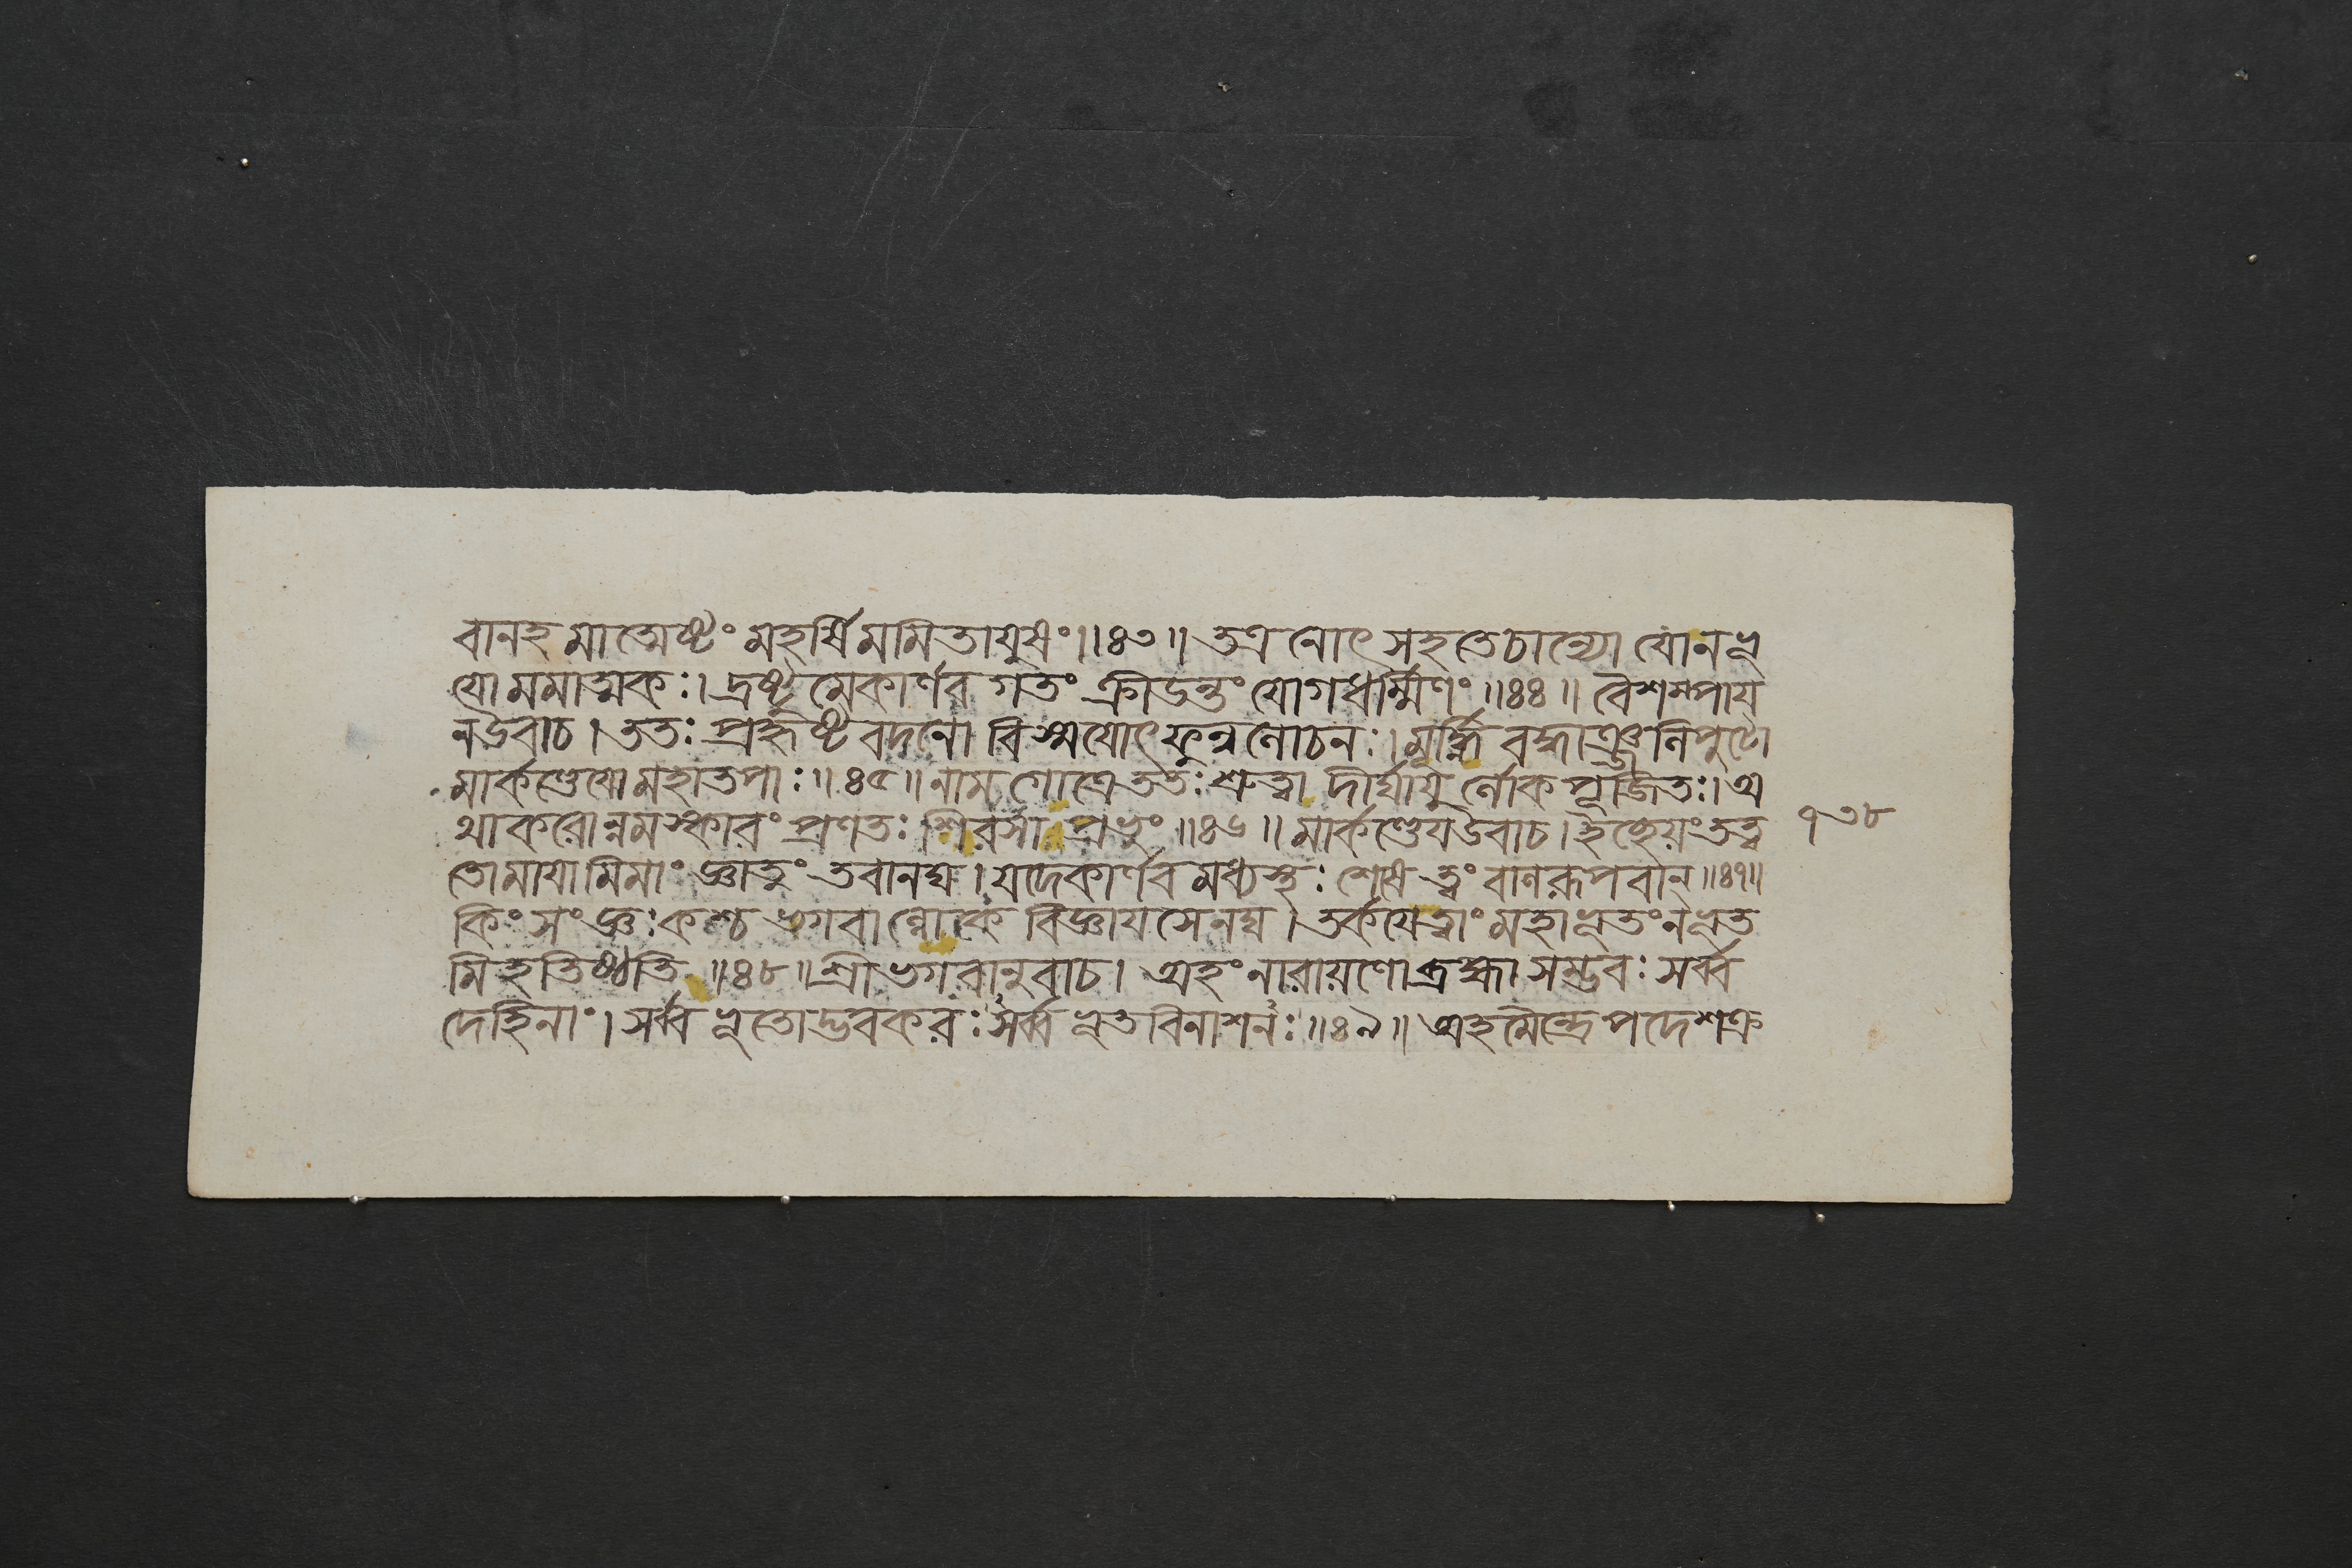 বানহমাত্মেষ্টং মহর্ষিমমিতাযুষং।।৪৩॥ তত্র নোৎসহতেচান্যো যোনভূ
যোমমাত্মকঃ। দ্রষ্টুমেকার্ণবগতং ক্রীডন্তং যোগধর্ম্মিণং॥৪৪॥ বৈশম্পায
নউবাচ। ততঃ প্রহৃষ্টবদনো বিস্ময়োৎফুল্লনোচনঃ। মূর্দ্ধ্নি বদ্ধাঞ্জনিপুটো
মার্কণ্ডেযো মহাতপাঃ॥৪৫॥ নামগোত্রেততঃ শ্রুত্বা দীর্ঘাযুর্নোকপূজিতঃ। অ
থাকরোন্নমস্কারং প্রণতঃ শিরসা প্রভুং॥৪৬॥ মার্কণ্ডেযউবাচ। ইচ্ছেয়ংতত্ত্ব
তোমাযামিমাং জ্ঞাতুং তবানঘ। যদেকার্ণবমধ্যস্থঃ শেষেত্বং বানরূপবান্॥৪৭॥
কিংসংজ্ঞঃকশ্চ ভগবান্নোকে বিজ্ঞাযসেনঘ। তর্কযেত্বাং মহাভূতংনভূত
মিহতিষ্ঠতি॥৪৮॥ শ্রীভগবানুবাচ। অহং নারায়ণোব্রহ্মা সম্ভবঃ সর্ব্ব
দেহিনাং। সর্ব্বভূতোদ্ভবকরঃ সর্ব্বভূতবিনাশনঃ॥৪৯॥ অহমৈন্দ্রেপদেশক্র
১৩৮